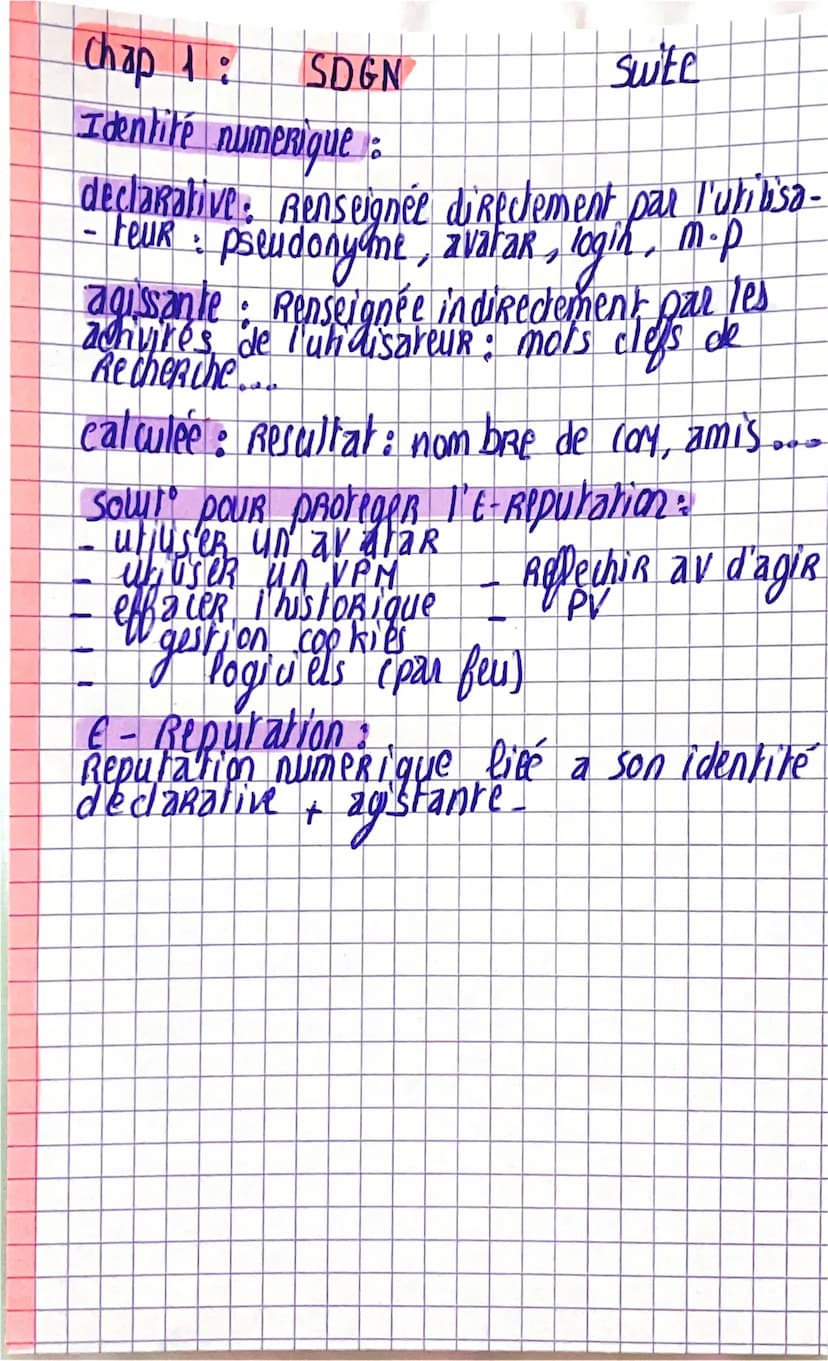 Chap 1 : SDGN Suite
Identité numerique :
declarative : Renseignée directement par l'utilisa-
- teur : pseudonyme, avatar, login, m.p
agissante : Renseignée indirectement par les
activités de l'utilisateur : mots clefs de
Recherche...
calculée : Resultat : nombre de com, amis ...
Solut° pour proteger l'E-Reputation :
- utiliser un avatar
- utiliser un VPM - Reflechir av d'agir
- effacer l'historique - PV
- gestion cookies
- logiciels (par feu)
E - Reputation :
Reputation numerique liée a son identité
déclarative + agistante -